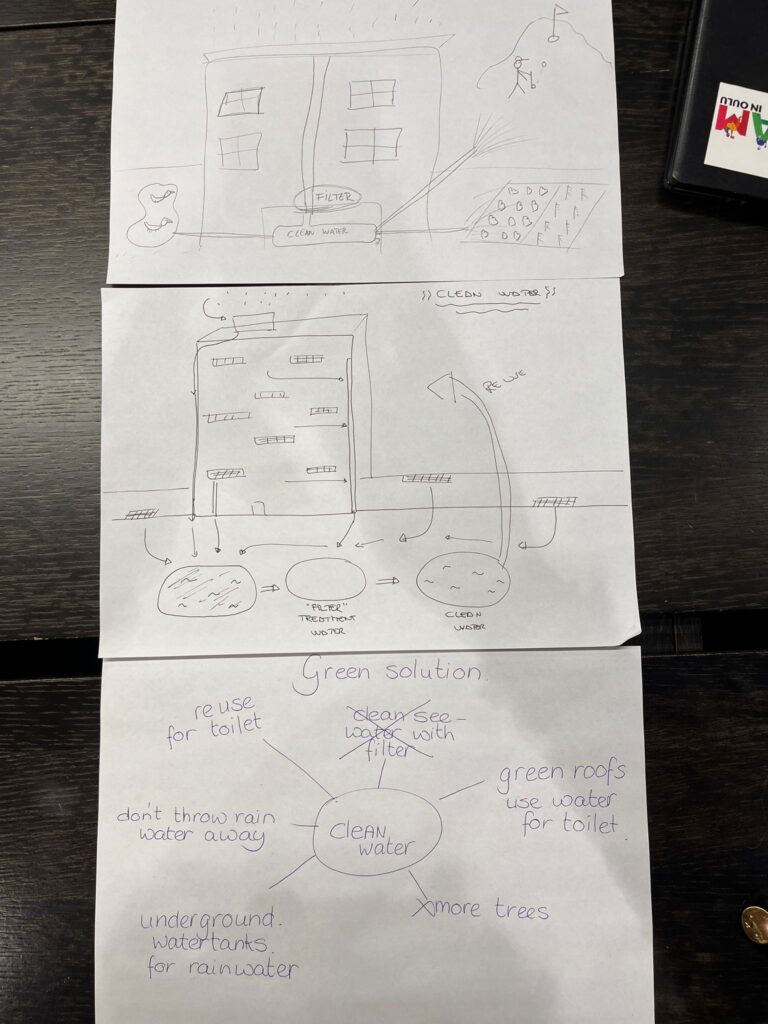 AM
IN OULU
FILTER
CLEAN WATER
}} CLEAN WATER }}
RE USE
"FILTER"
TREATMENT
WATER
CLEAN
WATER
Green solution.
reuse
for toilet
clean see-
water with
filter
green roofs
use water
for toilet.
don't throw rain
water away
CleAN
water
underground.
watertanks.
for rainwater
Xmore trees